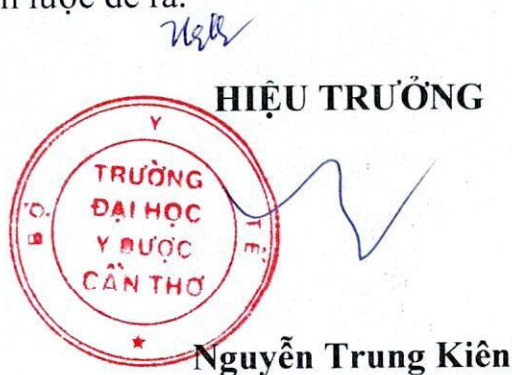 lược đề ra.
HIỆU TRƯỞNG
BỘ Y TẾ
TRƯỜNG
ĐẠI HỌC
Y DƯỢC
CẦN THƠ
Nguyễn Trung Kiên